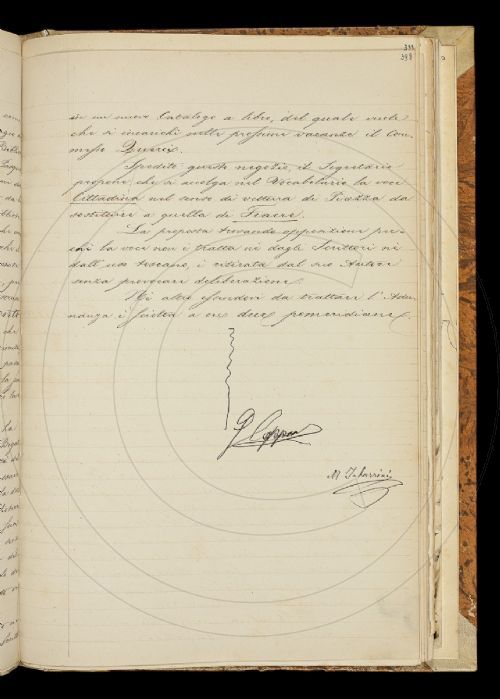 331
398
in un nuovo Catalogo a libro, del quale vuole
che si incarichi nelle prossime vacanze il Com-
messo
Spedito questo negozio, il Segretario
propone, che si accolga nel Vocabolario la voce
Cittadina nel senso di vettura di Piazza da
sostituire a quella di Fiacre.
La proposta trovando opposizione per-
chè la voce non è tratta nè dagli Scrittori nè
dall'uso toscano, è ritirata dal suo Autore
senza provocare deliberazione.
Nè altro essendovi da trattare l'Adu-
nanza è sciolta a ore due pomeridiane.
G Capponi
M Tabarrini